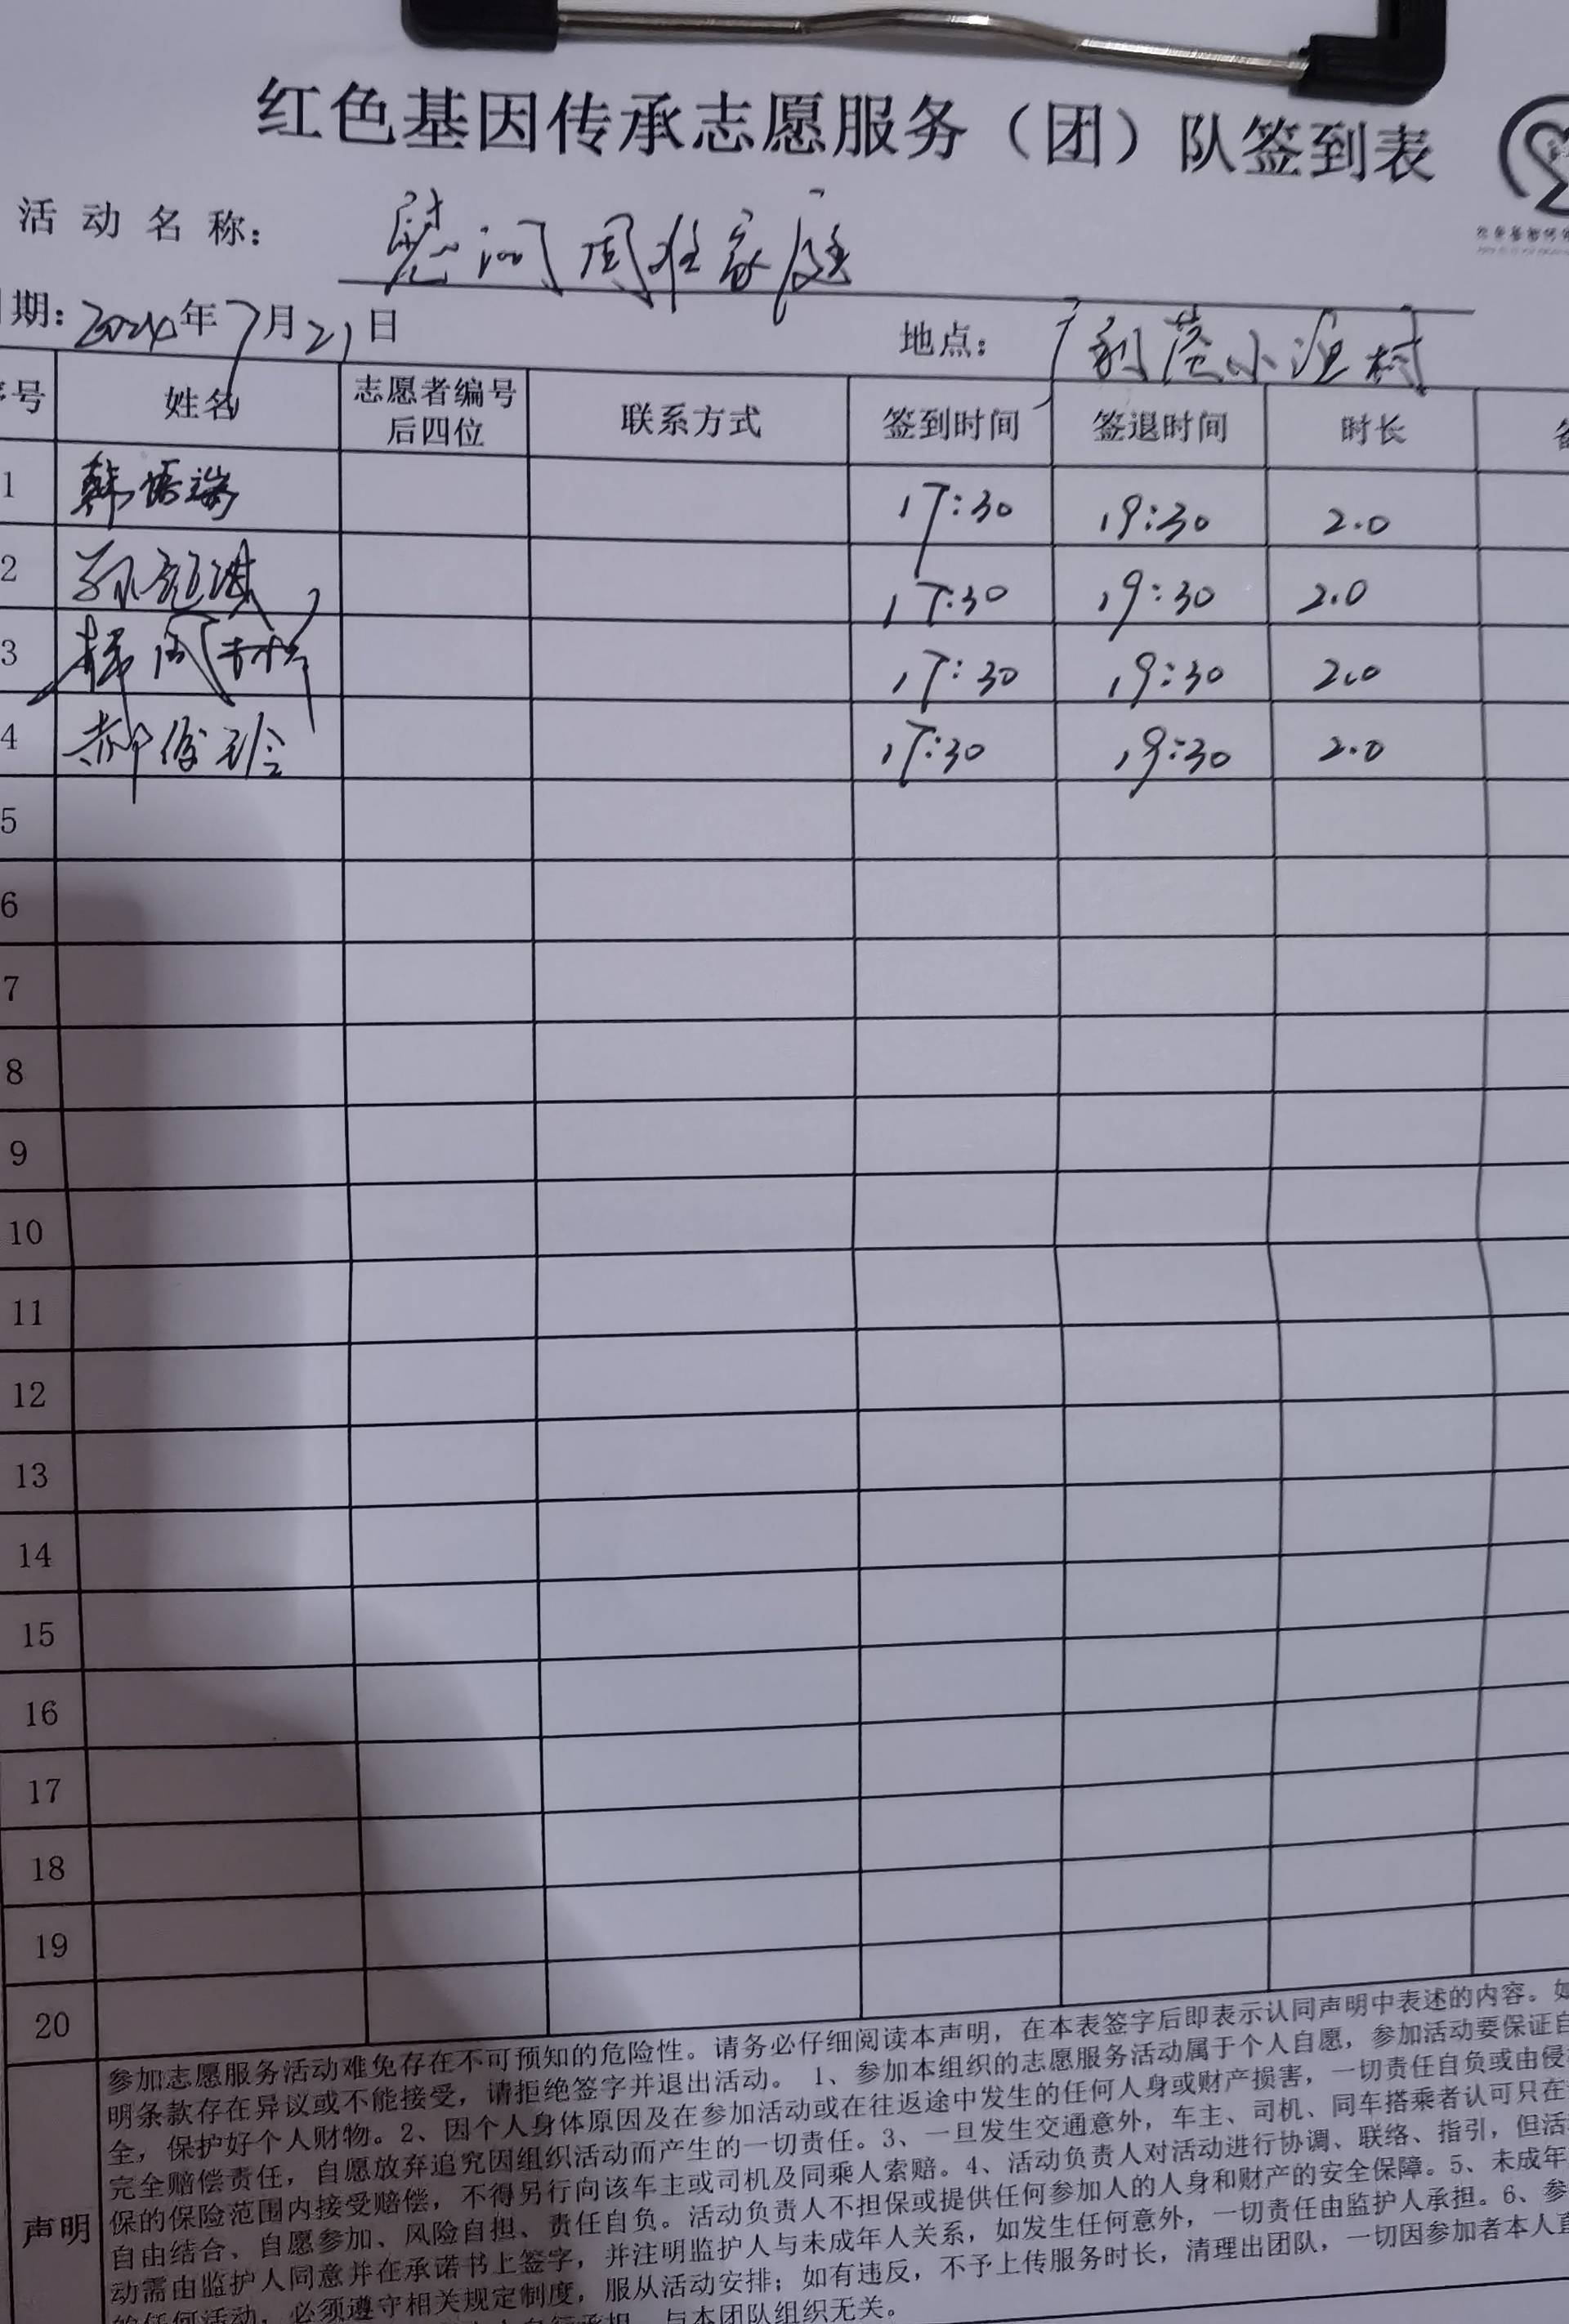 红色基因传承志愿服务（团）队签到表
活动名称： 慰问困难家庭
期：2024年7月21日 地点： 小渔村
序号 姓名 志愿者编号后四位 联系方式 签到时间 签退时间 时长
1 韩 17:30 19:30 2.0
2 孙 17:30 19:30 2.0
3 17:30 19:30 2.0
4 郝俊玲 17:30 19:30 2.0
5
6
7
8
9
10
11
12
13
14
15
16
17
18
19
20
声明
参加志愿服务活动难免存在不可预知的危险性。请务必仔细阅读本声明，在本表签字后即表示认同声明中表述的内容。如
明条款存在异议或不能接受，请拒绝签字并退出活动。 1、参加本组织的志愿服务活动属于个人自愿，参加活动要保证自
全，保护好个人财物。2、因个人身体原因及在参加活动或在往返途中发生的任何人身或财产损害，一切责任自负或由侵
完全赔偿责任，自愿放弃追究因组织活动而产生的一切责任。3、一旦发生交通意外，车主、司机、同车搭乘者认可只在
保的保险范围内接受赔偿，不得另行向该车主或司机及同乘人索赔。4、活动负责人对活动进行协调、联络、指引，但活
自由结合、自愿参加、风险自担、责任自负。活动负责人不担保或提供任何参加人的人身和财产的安全保障。5、未成年
动需由监护人同意并在承诺书上签字，并注明监护人与未成年人关系，如发生任何意外，一切责任由监护人承担。6、参
的任何活动，必须遵守相关规定制度，服从活动安排；如有违反，不予上传服务时长，清理出团队，一切因参加者本人直
与本团队组织无关。